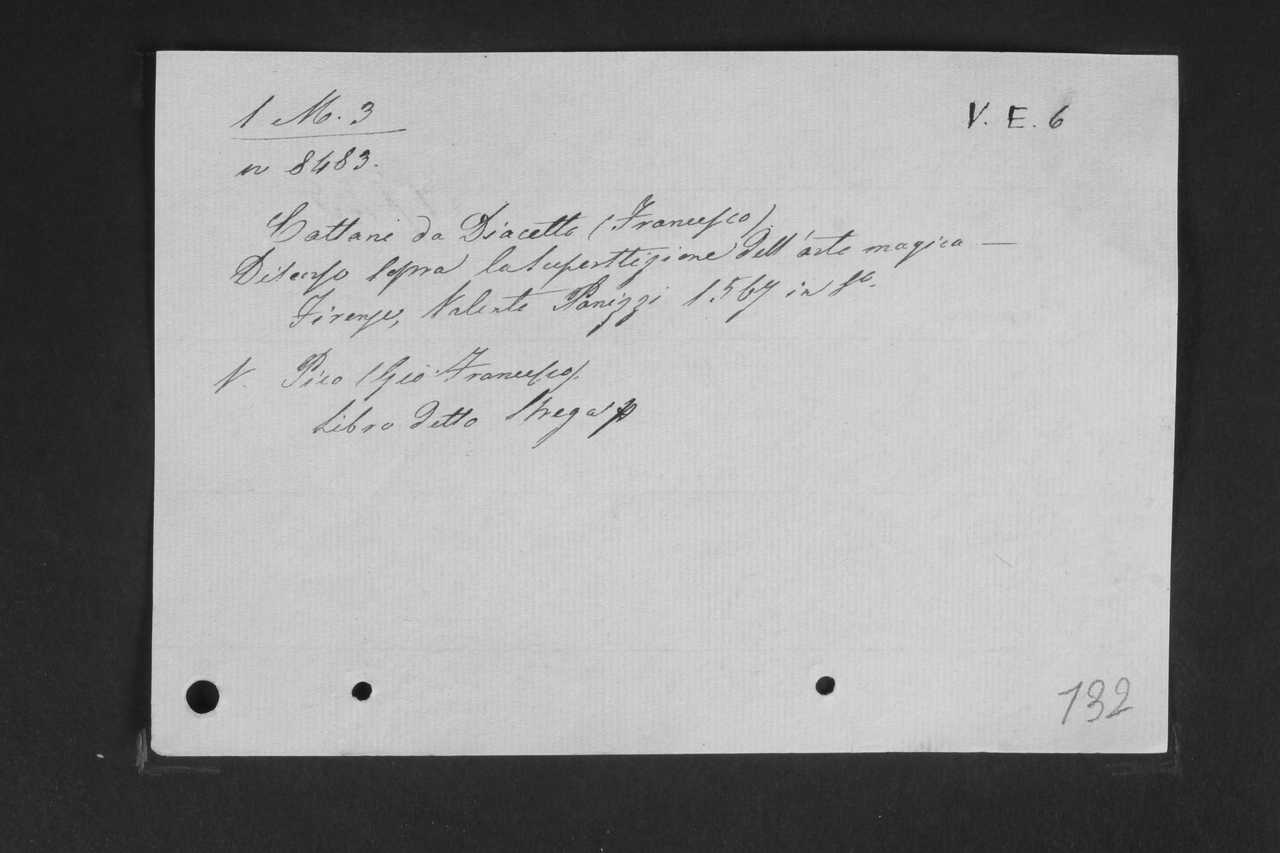 1 M. 3
V. E. 6
n 8483.
Cattani da Diacetto (Francesco)
Discorso sopra la superstizione dell'arte magica —
Firenze, Valente Panizzi 1567 in 8o.
V. Pico (Gio: Francesco).
Libro detto Strega
132